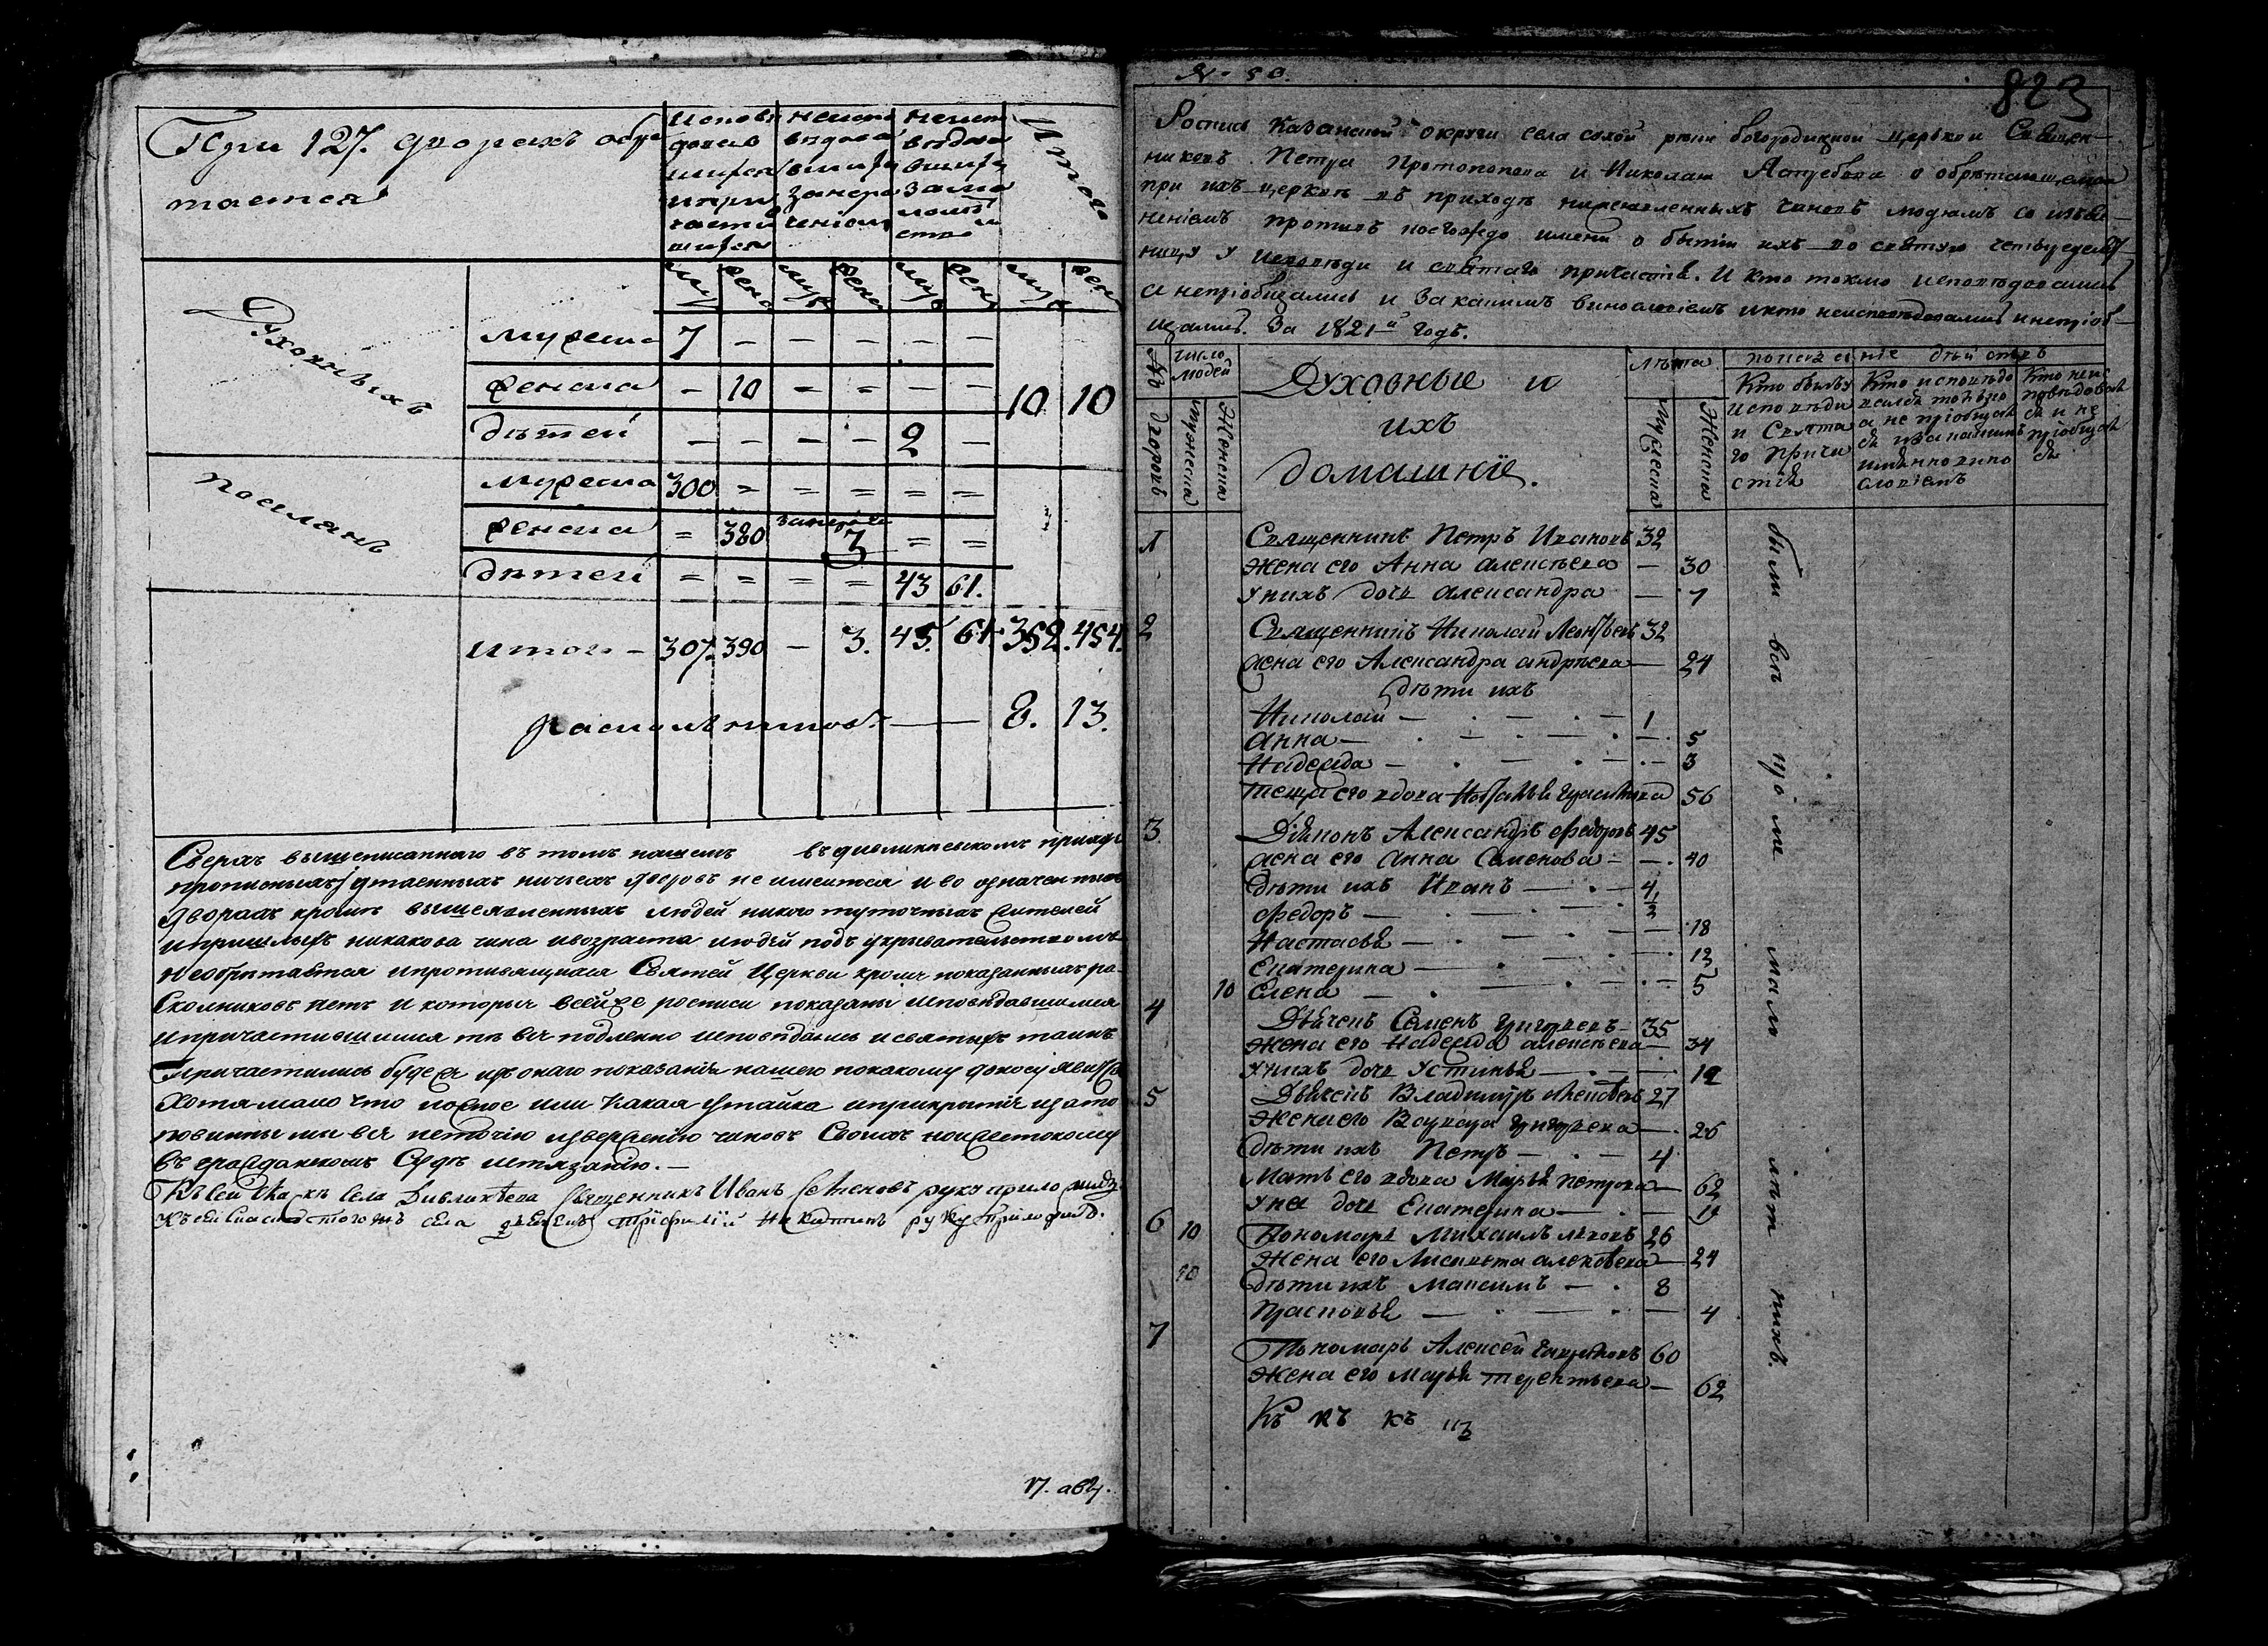 При 127. дворахъ обре
тается
Исповѣ
дався
шихся
и при
части
шихся
неиспо
вѣдова
вшихся
за нера
чениемъ
неисп
вѣдова
вшихся
за ма
лолѣт
ство
Итого
муж жен муж жен муж жен муж жен
Духовныхъ
мужеска 7 — — — — —
женска — 10 — — — —
дѣтей — — — — 2 —
10 10
поселянъ
мужеска 300 = = = = =
женска = 380 3 = =
дѣтей = = = = 43 61.
итого — 307. 390 — 3. 45. 61. 352. 454.
раскольниковъ — — 8. 13.
Сверхъ вышеписаннаго въ томъ нашемъ приходѣ
прописныхъ утаенныхъ ничьихъ дворовъ не имеится и во означенныхъ
дворахъ кромѣ вышеявленныхъ людей никого туточныхъ жителей
и пришлыхъ никакова чина ивозраста людей подъ укрывательствомъ
необрѣтается ипротивящихся Святей Церкви кромѣ показанныхъ ра-
скольниковъ нетъ и которыя всейже росписи показаны исповѣдавшимися
ипричастившимися тѣ всѣ подленно исповѣдались исвятыхъ таинъ
причастились будеже изъ онаго показанія нашего покакому доносу явится
хотя мало что ложное или какая утайка иприкрытія изато
повинны мы всѣ неточію изверженію чиновъ Своихъ ноижестокому
въ гражданскомъ Судѣ истязанію.—
Къ сей села священникъ Иванъ Семеновъ руку приложилъ
того жъ села дьячекъ Никитинъ руку приложилъ.
№ 50.
823
Роспись Казанской округи села сухой реки богородицкой церькви Священ-
никовъ Петра Протопопова и Николая Ястребова о обрѣтающихся
при ихъ церкви въ приходѣ нижеявленныхъ чиновъ людямъ со изъя-
неніемъ противъ коегождо имени о бытіи ихъ во святую четыредесят-
ницу у исповѣди и святаго причастія. И кто токмо исповѣдовались
а непріобщались и за какимъ винословіемъ икто неисповѣдовались инепріоб-
щались. За 1821й годъ.
№ дворовъ
число людей
мужеска
женска
Духовные и
ихъ
домашніе.
лѣта
мужеска
женска
показаніе дѣйствъ
Кто былъ у
исповѣди
и Свята
го Прича
стія
Кто исповѣдо
вался токмо
а не пріобщал
ся и за какимъ
имянно вино
словіемъ
Кто неис
повѣдовал
ся и не
пріобщал
ся
1 Священникъ Петръ Ивановъ 32
жена его Анна алексѣева — 30
у нихъ дочь александра — 7
2 Священникъ Николай Леонтьевъ 32
жена его Александра андрѣева — 24
дѣти ихъ
Николай — 1
анна — 5
Надежда — 3
теща его вдова Наталья 56
3 Діяконъ Александръ Федоровъ 45
жена его Анна Семенова — 40
дѣти ихъ Иванъ — 4
Федоръ — 2
Настасья — 18
Екатерина — 12
10 Елена — 5
4 Дьячекъ Семенъ григорьевъ — 35
жена его Надежда алексѣева — 34
у нихъ дочь Устинья — 12
5 Дьячекъ Владимиръ 27
жена его Варвара григорьева — 26
дѣти ихъ Петръ — 4
мать его вдова Марья петрова — 62
у нея дочь Екатерина —
6 10 Пономарь Михаилъ львовъ 26
жена его Лисавета — 24
10 дѣти ихъ максимъ — 8
прасковья — 4
7 Пономарь Алексей гавриловъ 60
жена его марья терентьева — 62
были всѣ кроме малолѣтнихъ.
Къ къ къ
17. авг.